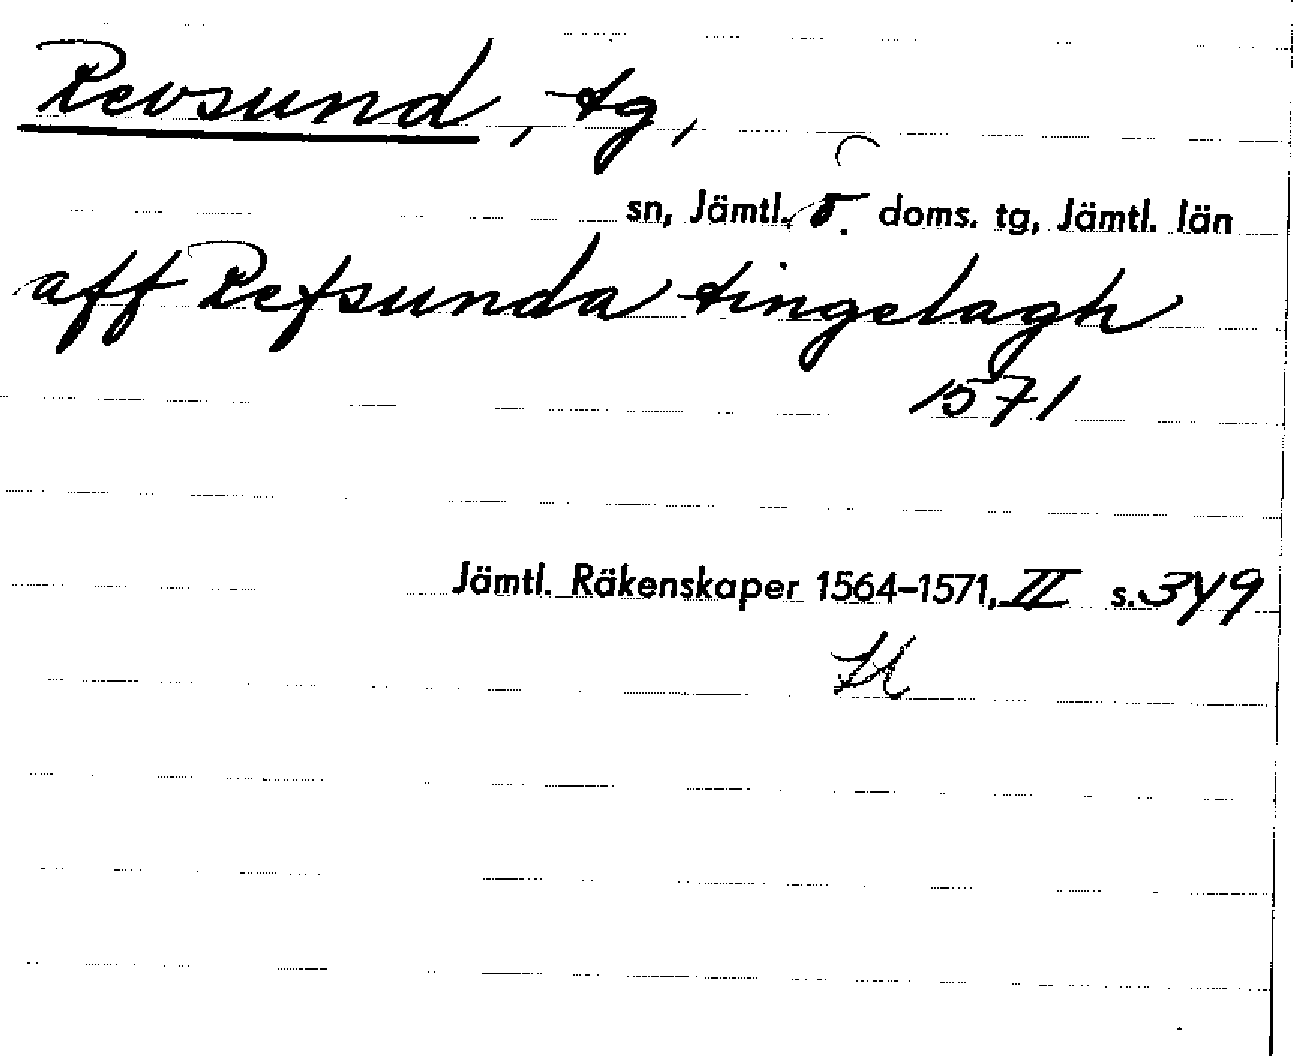 Revsund, tg,
sn, Jämtl. ö. doms. tg, Jämtl. län
aff Refsunda tingelagh
1571
Jämtl. Räkenskaper 1564–1571, II s. 349